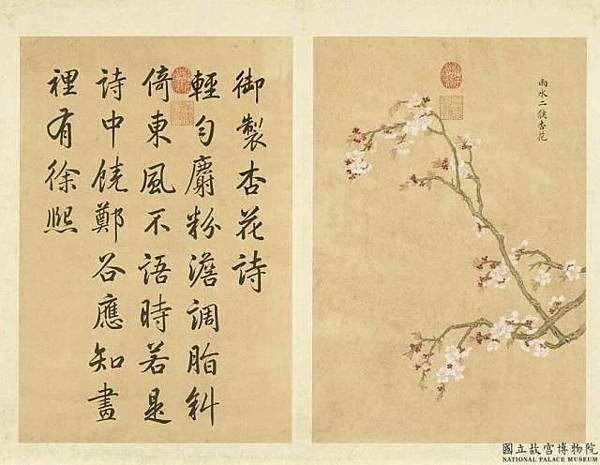 御製杏花詩
輕勻麝粉澹調脂斜
倚東風不語時若是
詩中饒鄭谷應知畫
裡有徐熙
雨水二候杏花
國立故宮博物院
NATIONAL PALACE MUSEUM